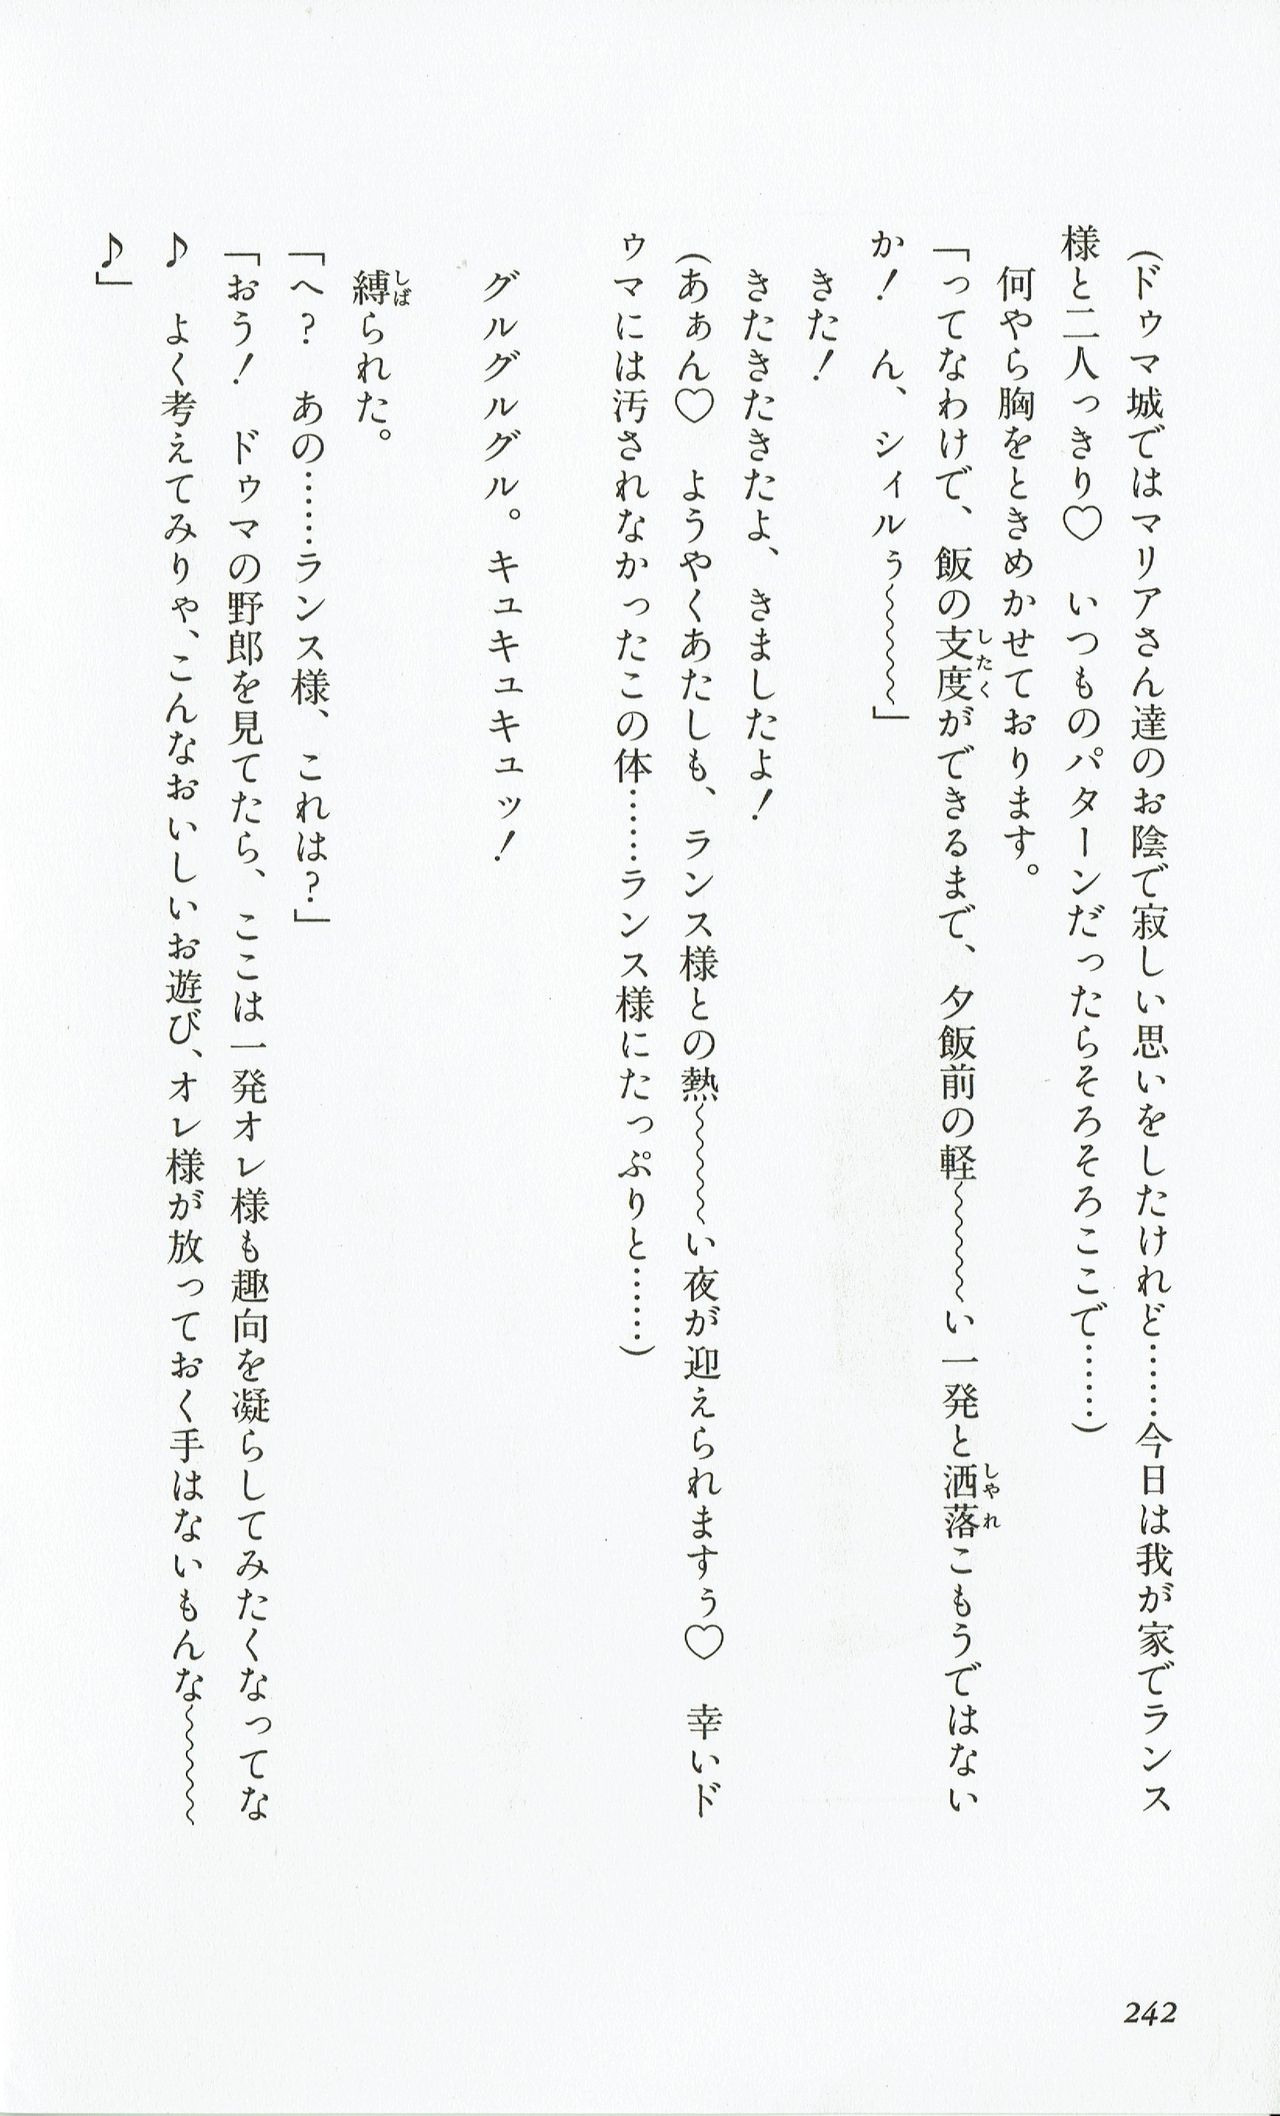 （ドゥマ城ではマリアさん達のお陰で寂しい思いをしたけれど……今日は我が家でランス
様と二人っきり♡　いつものパターンだったらそろそろここで……）
　何やら胸をときめかせております。
「ってなわけで、飯の支度ができるまで、夕飯前の軽〜〜〜〜い一発と洒落こもうではない
か！　ん、シィルぅ〜〜〜〜」
　きた！
　きたきたきたよ、きましたよ！
（あぁん♡　ようやくあたしも、ランス様との熱〜〜〜〜い夜が迎えられますぅ♡　幸いド
ゥマには汚されなかったこの体……ランス様にたっぷりと……）
　グルグルグル。キュキュキュッ！
　縛られた。
「へ？　あの……ランス様、これは？」
「おう！　ドゥマの野郎を見てたら、ここは一発オレ様も趣向を凝らしてみたくなってな
♪　よく考えてみりゃ、こんなおいしいお遊び、オレ様が放っておく手はないもんな〜〜〜〜
♪」
242